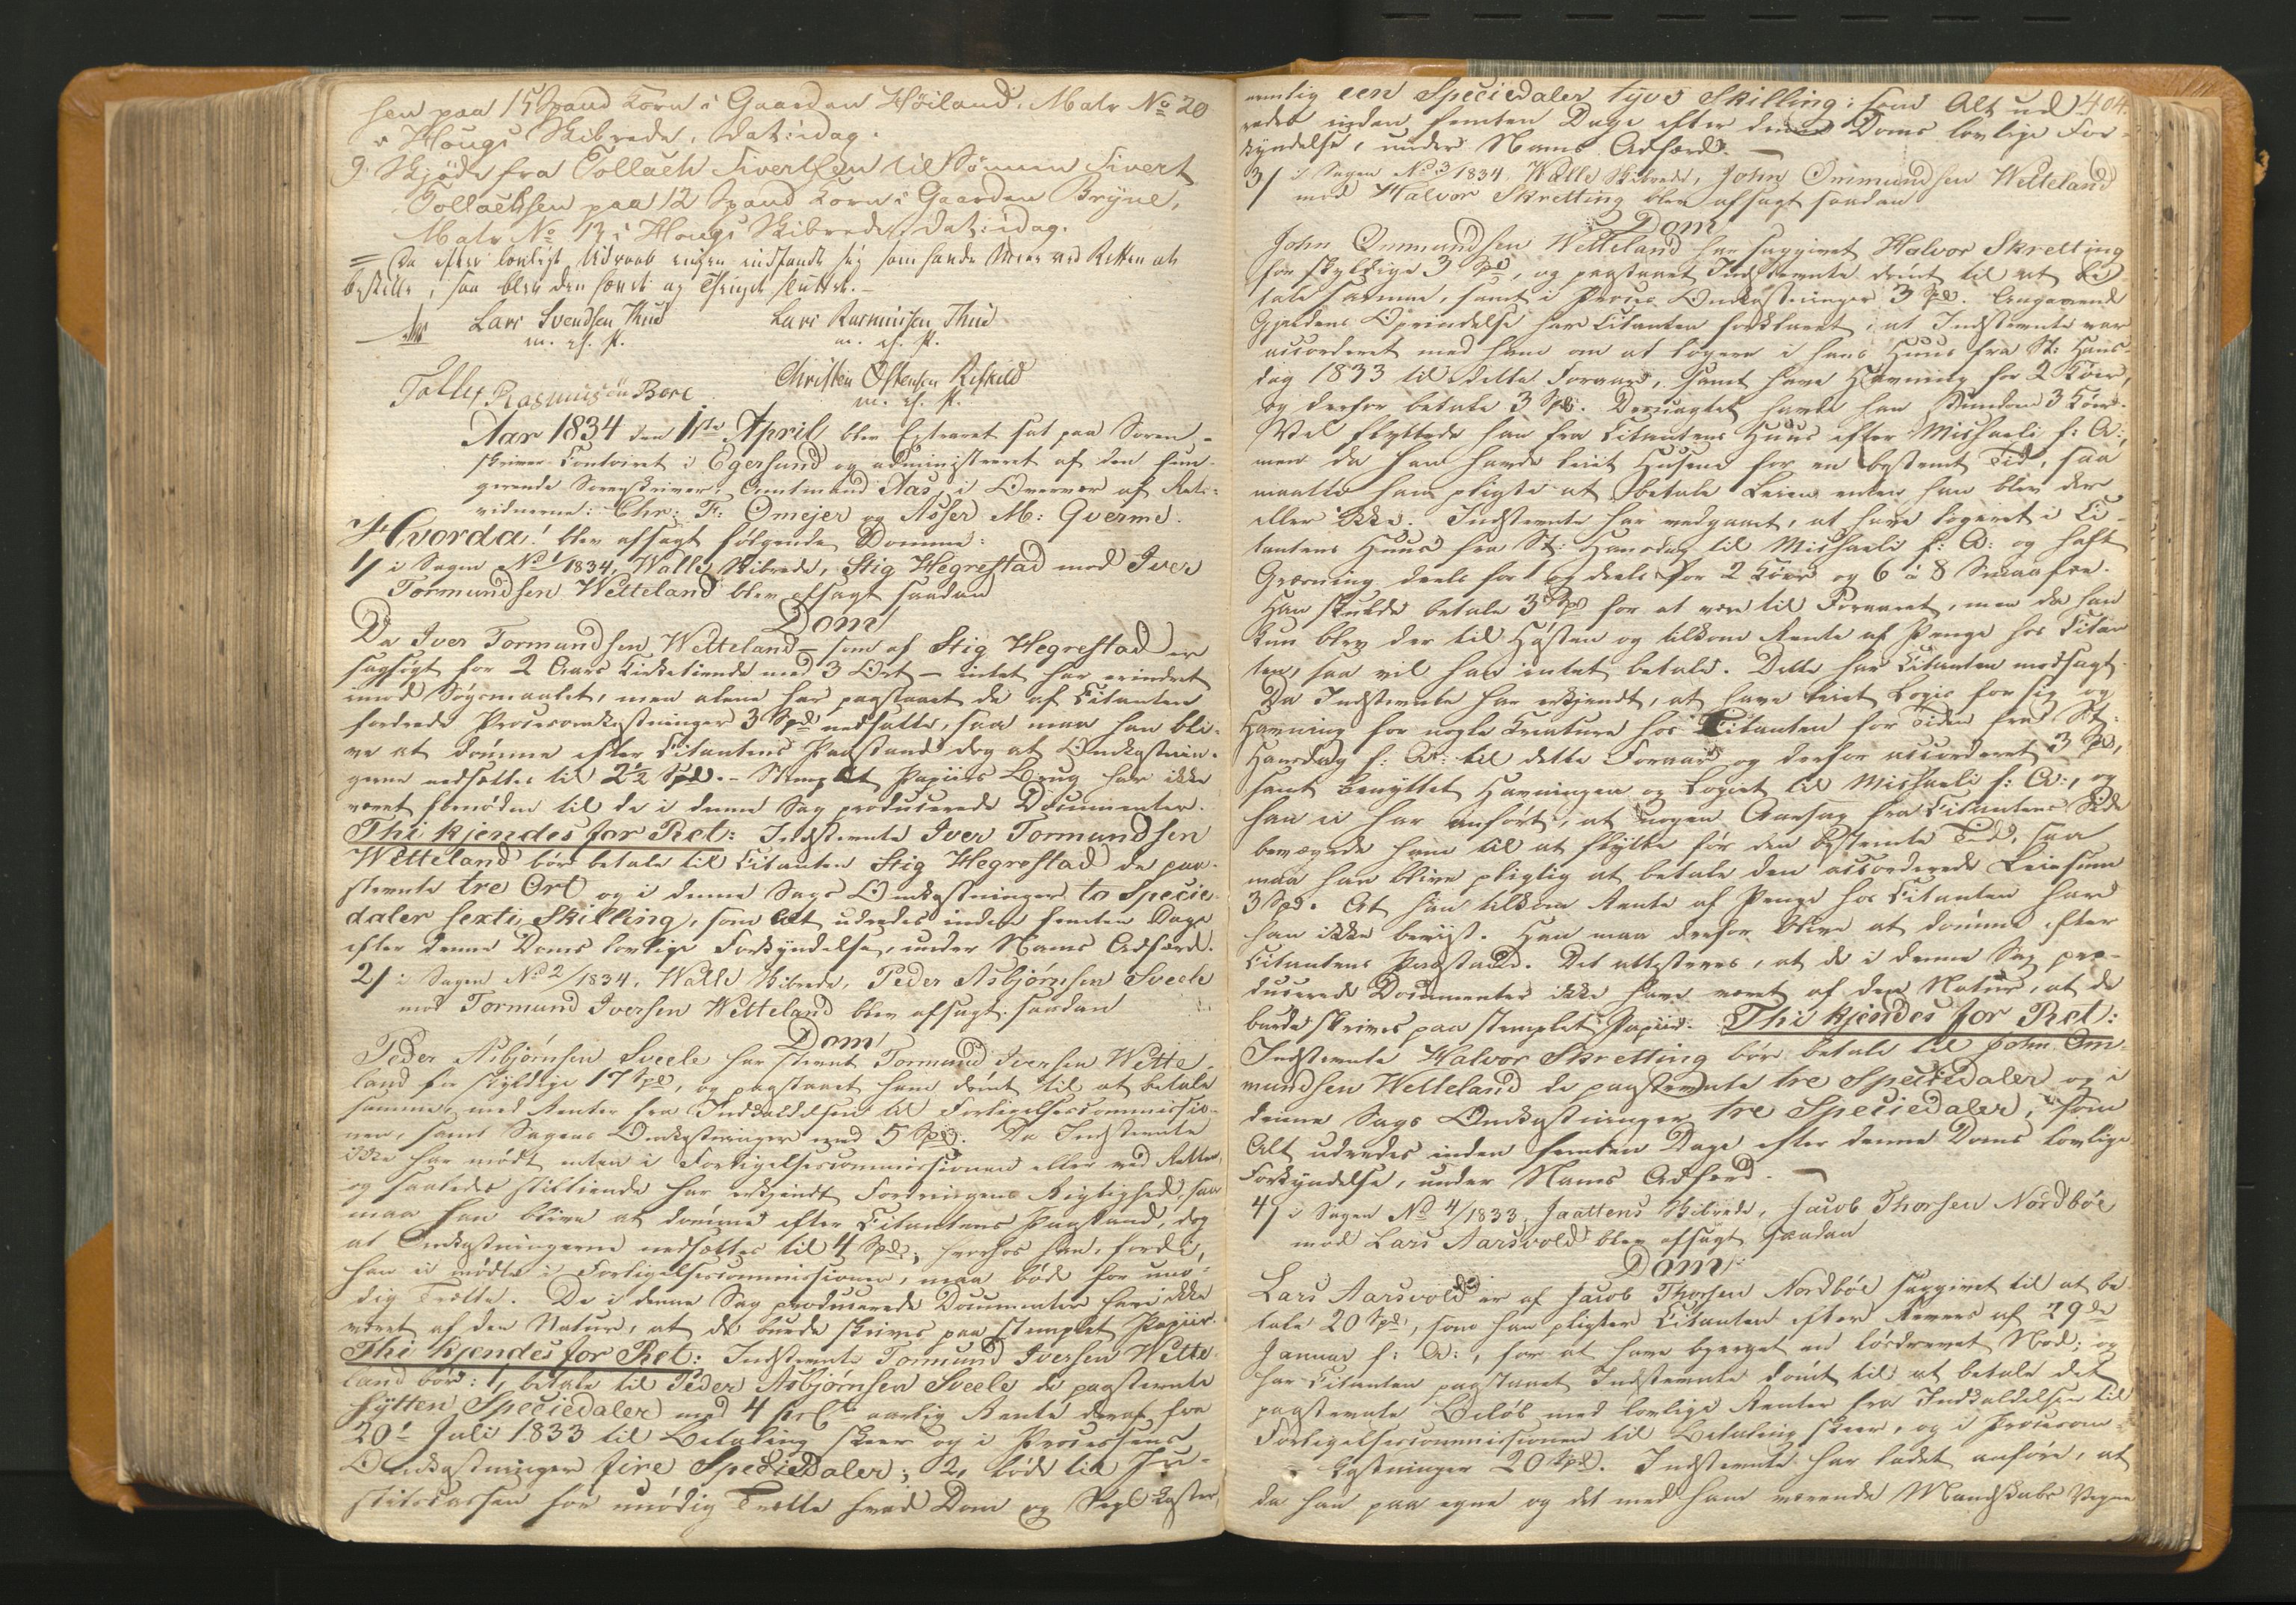 sen paa 15 Spand Korn i Gaarden Höiland, Matr No 20
i Hougs Skibrede, dat: idag.
9. Skjöde fra Tollach Sivertsen til Sönnen Sivert
Tollachsen paa 12 Spand Korn i Gaarden Bryne,
Matr. No 13 i Hougs Skibrede, dat: idag.
= Da efter lovligt Udraab ingen indfandt sig som havde Meer ved Retten at
bestille, saa blev den hævet og Thinget sluttet. -
Lars Svendsen Thu Lars Rasmusen Thu
m. f. P. m. f. P.
Tolle Rasmusön Bore Christen Ostensen
m. f. P.
Aar 1834 den 1ste April blev Extraret sat paa Soren-
skriver-Contoiret i Egersund og administreret af den fun-
gerende Sorenskriver, Amtmand Aas, i Overvær af Rets-
vidnerne: Chr: F: Omejer og Asser M: Gverme.
Hvorda! blev afsagt følgende Domme:
1/ i Sagen No 1/1834, Walle Skibrede, Stig Hegrestad mod Iver
Tormundsen Wetteland blev afsagt saadan
Dom
Da Iver Tormundsen Wetteland - som af Stig Hegrestad er
sagsögt for 2 Aars Kirketiende med 3 Ort - intet har erindret
imod Sögsmaalet, men alene har paastaaet de af Citanten
fordrede Procesomkostninger 3 Spd nedsatte, saa maa han bli-
ve at dömme efter Citantens Paastand dog at Omkostnin-
gerne nedsættes til 2½ Spd. - Stemplet Papiirs Brug har ikke
været fornöden til de i denne Sag producerede Documenter.
Thi kjendes for Ret: Indstevnte Iver Tormundsen
Wetteland bör betale til Citanten Stig Hegrestad de paa-
stevnte tre Ort og i denne Sags Omkostninger to Specie-
daler sexti Skilling, som Alt udredes inden femten Dage
efter denne Doms lovlige Forkyndelse, under Nams Adfærd.
2/ i Sagen No 2/1834, Walle Skibrede, Peder Asbjörnsen Sveele
mod Tormund Iversen Wetteland blev afsagt saadan
Dom
Peder Asbjörnsen Sveele har stevnt Tormund Iversen Wette-
land for skyldige 17 Spd, og paastaaet ham dömt til at betale
samme, med Renter fra Indkaldelsen til Forligelsescommissio-
nen, samt Sagens Omkostninger med 5 Spd. Da Indstevnte
ikke har mödt enten i Forligelsescommissionen eller ved Retten,
og saaledes stiltiende har erkjendt Fordringens Rigtighed, saa
maa han blive at dömme efter Citantens Paastand, dog
at Omkostningerne nedsættes til 4 Spd, hvorhos han, fordi
han ei mödte i Forligelsescommissionen, maa böde for unö-
dig Trætte. De i denne Sag producerede Documenter have ikke
været af den Natur, at de burde skrives paa stemplet Papiir.
Thi kjendes for Ret: Indstevnte Tormund Iversen Wette-
land bör: 1, betale til Peder Asbjörnsen Sveele de paastevnte
sytten Speciedaler med 4 prCt aarlig Rente deraf fra
20de Juli 1833 til Betaling skeer og i Processens
Omkostninger fire Speciedaler; 2, böde til Ju-
stitscassen for unödig Trætte hvad Dom og Segl koster,
404.
nemlig een Speciedaler tyve Skilling: som Alt ud-
redes inden femten Dage efter denne Doms lovlige For-
kyndelse, under Nams Adfærd. -
3/ i Sagen No 3/1834 Walle Skibrede, John Ommundsen Wetteland
mod Halvor Skretting blev afsagt saadan
Dom
John Ommundsen Wetteland har sagsgivet Halvor Skretting
for skyldige 3 Spd, og paastaaet Indstevnte dömt til at be-
tale samme, samt i Proces Omkostninger 3 Spd. Angaaende
Gjeldens Oprindelse har Citanten forklaret, at Indstevnte var
accorderet med ham om at logere i hans Huus fra St: Hans-
dag 1833 til dette Foraar, samt have Havning for 2 Köer,
og derfor betale 3 Spd. Desuagtet havde han stundom 3 Köer.
Vel flyttede han fra Citantens Huus efter Michaeli f: A:,
men da han havde leiet Husene for en bestemt Tid, saa
maatte han pligte at betale Leien enten han blev der
eller ikke. Indstevnte har vedgaaet, at have logeret i Ci-
tantens Huus fra St: Hansdag til Michaeli f: A: og haft
Græsning deels for 1 og deels for 2 Köer og 6 à 8 Smaafæ.
Han skulde betale 3 Spd for at være til Foraaret, men da han
kun blev der til Hösten og tilkom Rente af Penge hos Citan-
ten, saa vil han intet betale. Dette har Citanten modsagt.
Da Indstevnte har erkjendt, at have leiet Logie for sig og
Havning for nogle Creature hos Citanten for Tiden fra St:
Hansdag f: A: til dette Foraar og derfor accorderet 3 Spd,
samt benyttet Havningen og Logiet til Michaeli f: A:, og
han ei har anfört, at nogen Aarsag fra Citantens Side
bevægede ham til at flytte för den bestemte Tid, saa
maa han blive pligtig at betale den accorderede Leiesum
3 Spd. At han tilkom Rente af Penge hos Citanten har
han ikke beviist. Han maa derfor blive at dömme efter
Citantens Paastand. Det attesteres, at de i denne Sag pro-
ducerede Documenter ikke have været af den Natur, at de
burde skrives paa stemplet Papiir. Thi kjendes for Ret:
Indstevnte Halvor Skretting bör betale til John Om-
mundsen Wetteland de paastevnte tre Speciedaler og i
denne Sags Omkostninger tre Speciedaler, som
Alt udredes inden femten Dage efter denne Doms lovlige
Forkyndelse, under Nams Adfærd. -
4/ i Sagen No 4/1833, Jaattens Skibrede, Jacob Thorsen Nordböe
mod Lars Aarsvold blev afsagt saadan
Dom
Lars Aarsvold er af Jacob Thorsen Nordböe sagsgivet til at be-
tale 20 Spd, som han pligter Citanten efter Revers af 29de
Januar f: A:, for at have bjerget en lösdrevet Nod; og
har Citanten paastaaet Indstevnte dömt til at betale det
paastevnte Belöb med lovlige Renter fra Indkaldelsen til
Forligelsescommissionen til Betaling skeer, og i Procesom-
kostninger 20 Spd. Indstevnte har ladet anföre, at
da han paa egne og det med ham værende Mandskabs Vegne